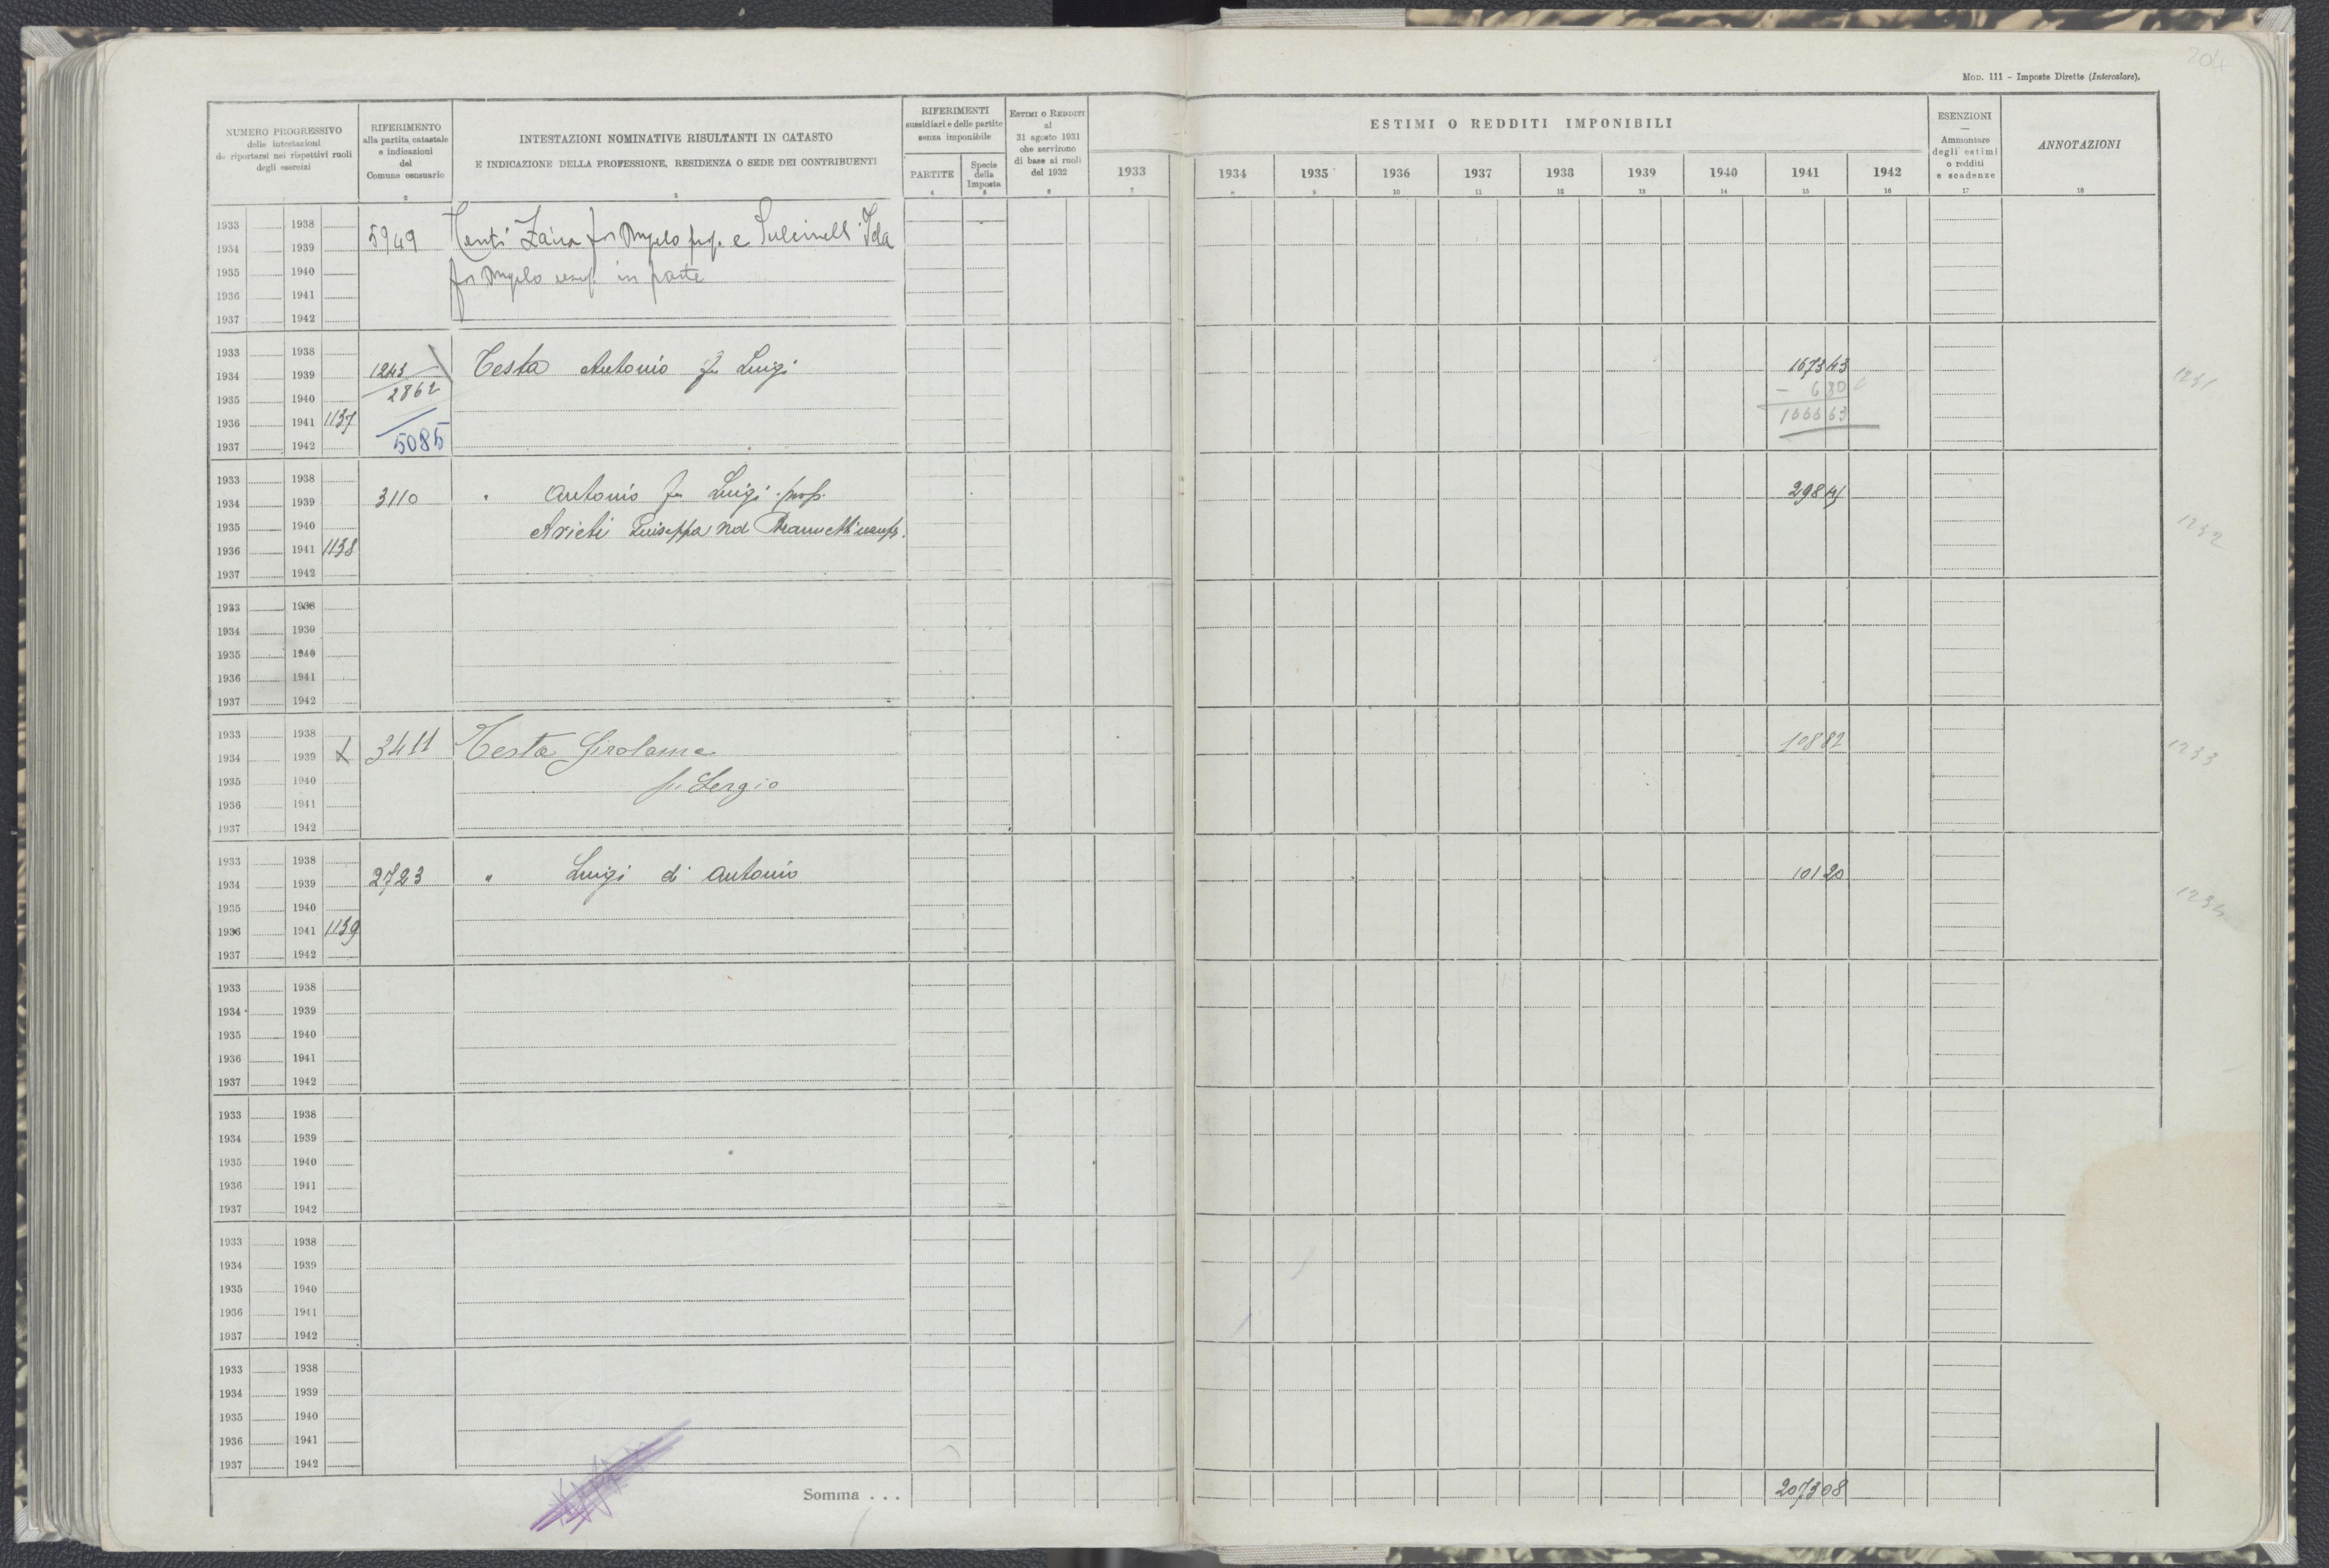 204
MOD. 111 - Imposte Dirette (Intercalare).
NUMERO PROGRESSIVO
delle intestazioni
da riportarsi nei rispettivi ruoli
degli esercizi
RIFERIMENTO
alla partita catastale
e indicazioni
del
Comune censuario
2
INTESTAZIONI NOMINATIVE RISULTANTI IN CATASTO
E INDICAZIONE DELLA PROFESSIONE, RESIDENZA O SEDE DEI CONTRIBUENTI
3
RIFERIMENTI
sussidiari e delle partite
senza imponibile
PARTITE
4
Specie
della
Imposta
5
ESTIMI O REDDITI
al
31 agosto 1931
che servirono
di base ai ruoli
del 1932
6
1933
7
ESTIMI O REDDITI IMPONIBILI
1934 1935 1936 1937 1938 1939 1940 1941 1942
8 9 10 11 12 13 14 15 16
ESENZIONI
Ammontare
degli estimi
o redditi
e scadenze
17
ANNOTAZIONI
18
1933 1938
1934 1939 5949 Tenti Zaira fu Angelo prop. e Pulcinelli Ida
1935 1940 fu Angelo usuf. in parte
1936 1941
1937 1942
1933 1938
1934 1939 1243 Testa Antonio fu Luigi 1673 43 1231
1935 1940 2862 - 6 80
1936 1941 1137 1666 63
1937 1942 5085
1933 1938
1934 1939 3110 " Antonio fu Luigi prop. 298 41
1935 1940 Arieti Giuseppa 1232
1936 1941 1138
1937 1942
1933 1938
1934 1939
1935 1940
1936 1941
1937 1942
1933 1938
1934 1939 X 3411 Testa Girolama 108 82 1233
1935 1940 fu Sergio
1936 1941
1937 1942
1933 1938
1934 1939 2723 " Luigi di Antonio 101 20 1234
1935 1940
1936 1941 1139
1937 1942
1933 1938
1934 1939
1935 1940
1936 1941
1937 1942
1933 1938
1934 1939
1935 1940
1936 1941
1937 1942
1933 1938
1934 1939
1935 1940
1936 1941
1937 1942
1933 1938
1934 1939
1935 1940
1936 1941
1937 1942
Somma . . . 2073 08